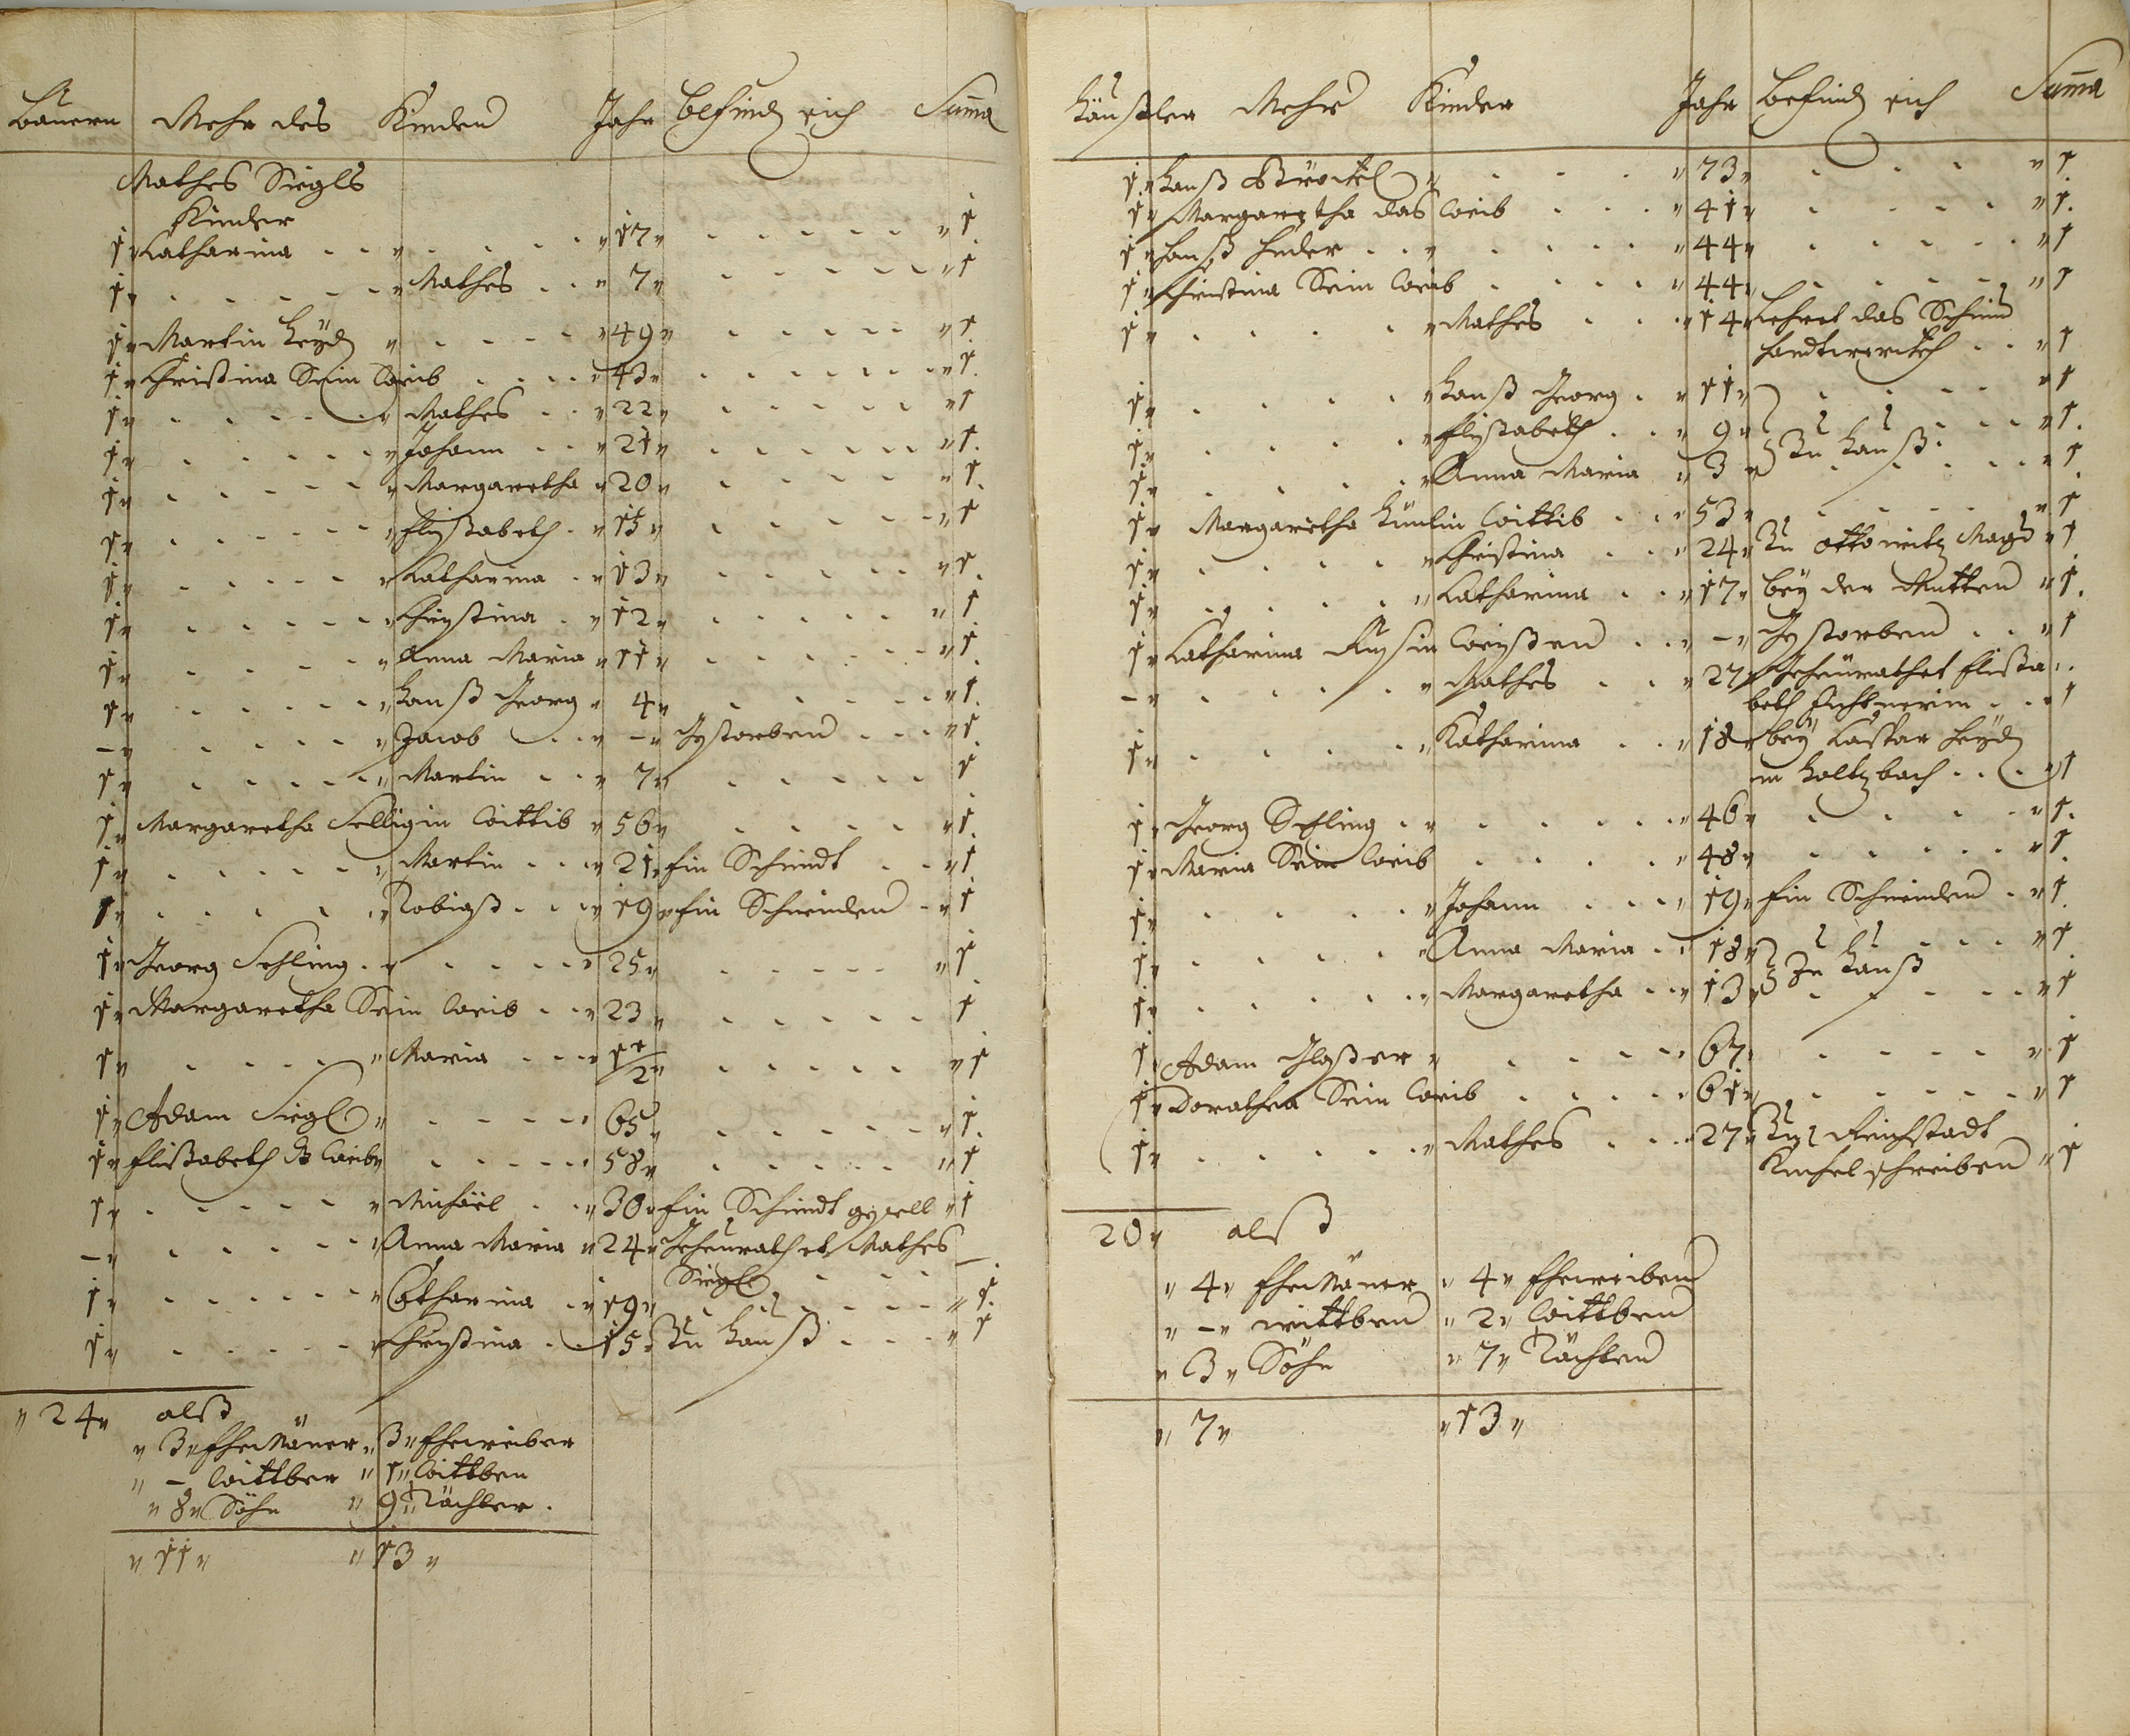 Bauern Mehr des Kinder Jahr befind sich Suma
Mathes Siegls
Kinder
1 Catharina 17 1
1 Mathes 7 1
1 Martin 49 1
1 Christina Sein Weib 43 1
1 Mathes 22 1
1 Johann 21 1
1 Margaretha 20 1
1 Elisabeth 15 1
1 Catharina 13 1
1 Christina 12 1
1 Anna Maria 11 1
1 Hanß Georg 4 1
– Jacob – Gestorben 1
1 Martin 7 1
1 Margaretha Wittib 56 1
1 Martin 21 Ein Schmidt 1
1 Tobiaß 19 Ein Schneider 1
1 Georg Schling 25 1
1 Margaretha Sein Weib 23 1
1 Maria 1/2 1
1 Adam Siegl 65 1
1 Elisabeth d. Weib 58 1
1 Michäel 30 Ein Schmidt gesell 1
– Anna Maria 24 Geheurathet Mathes –
Siegl
1 Catharina 19 1
1 Christina 15 Zu Hauß 1
24 alß
3 Ehemäner 3 Eheweiber
– Wittber 1 Wittben
8 Söhn 9 Töchter.
11 13
Häußler Mehr Kinder Jahr befind sich Suma
1 Hanß 73 1
1 Margaretha das Weib 41 1
1 Hanß 44 1
1 Christina Sein Weib 44 1
1 Mathes 14 Lehret das Schmid
Handtwerckh 1
1 Hanß Georg 11 1
1 Elisabeth 9 Zu Hauß. 1
1 Anna Maria 3 1
1 Margaretha Wittib 53 1
1 Christina 24 Zu Ottowitz Magd 1
1 Catharina 17 bey der Mutter 1
1 Catharina – Gestorben 1
– Mathes 27 Geheurathet Elisa
beth 1
1 Katharina 18 bey Caspar
in Holtzbach 1
1 Georg Schling 46 1
1 Maria Sein Weib 48 1
1 Johann 19 Ein Schneider 1
1 Anna Maria 18 Zu Hauß 1
1 Margaretha 13 1
1 Adam Glaßer 67 1
1 Dorathea Sein Weib 61 1
1 Mathes 27 Zu Reichstadt
Kuchelschreiber 1
20 alß
4 Ehemäner 4 Eheweiber
– wittber 2 Wittben
3 Söhn 7 Töchter
7 13